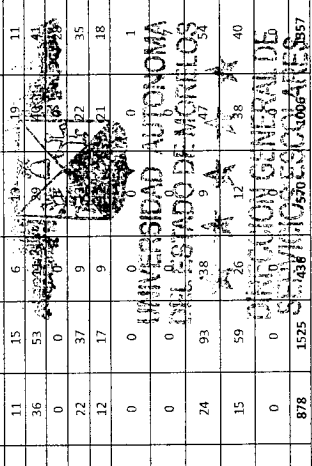 11 15 6 13 19 11
36 53 41
0 0
22 37 9 22 35
12 17 9 21 18
0 0 0 0 0 1
0 0
24 93 38 9 47 54
15 59 26 12 38 40
0 0
878 1525 436 570 1006 1357
UNIVERSIDAD AUTONOMA
DEL ESTADO DE MORELOS
DIRECCION GENERAL DE
SERVICIOS ESCOLARES